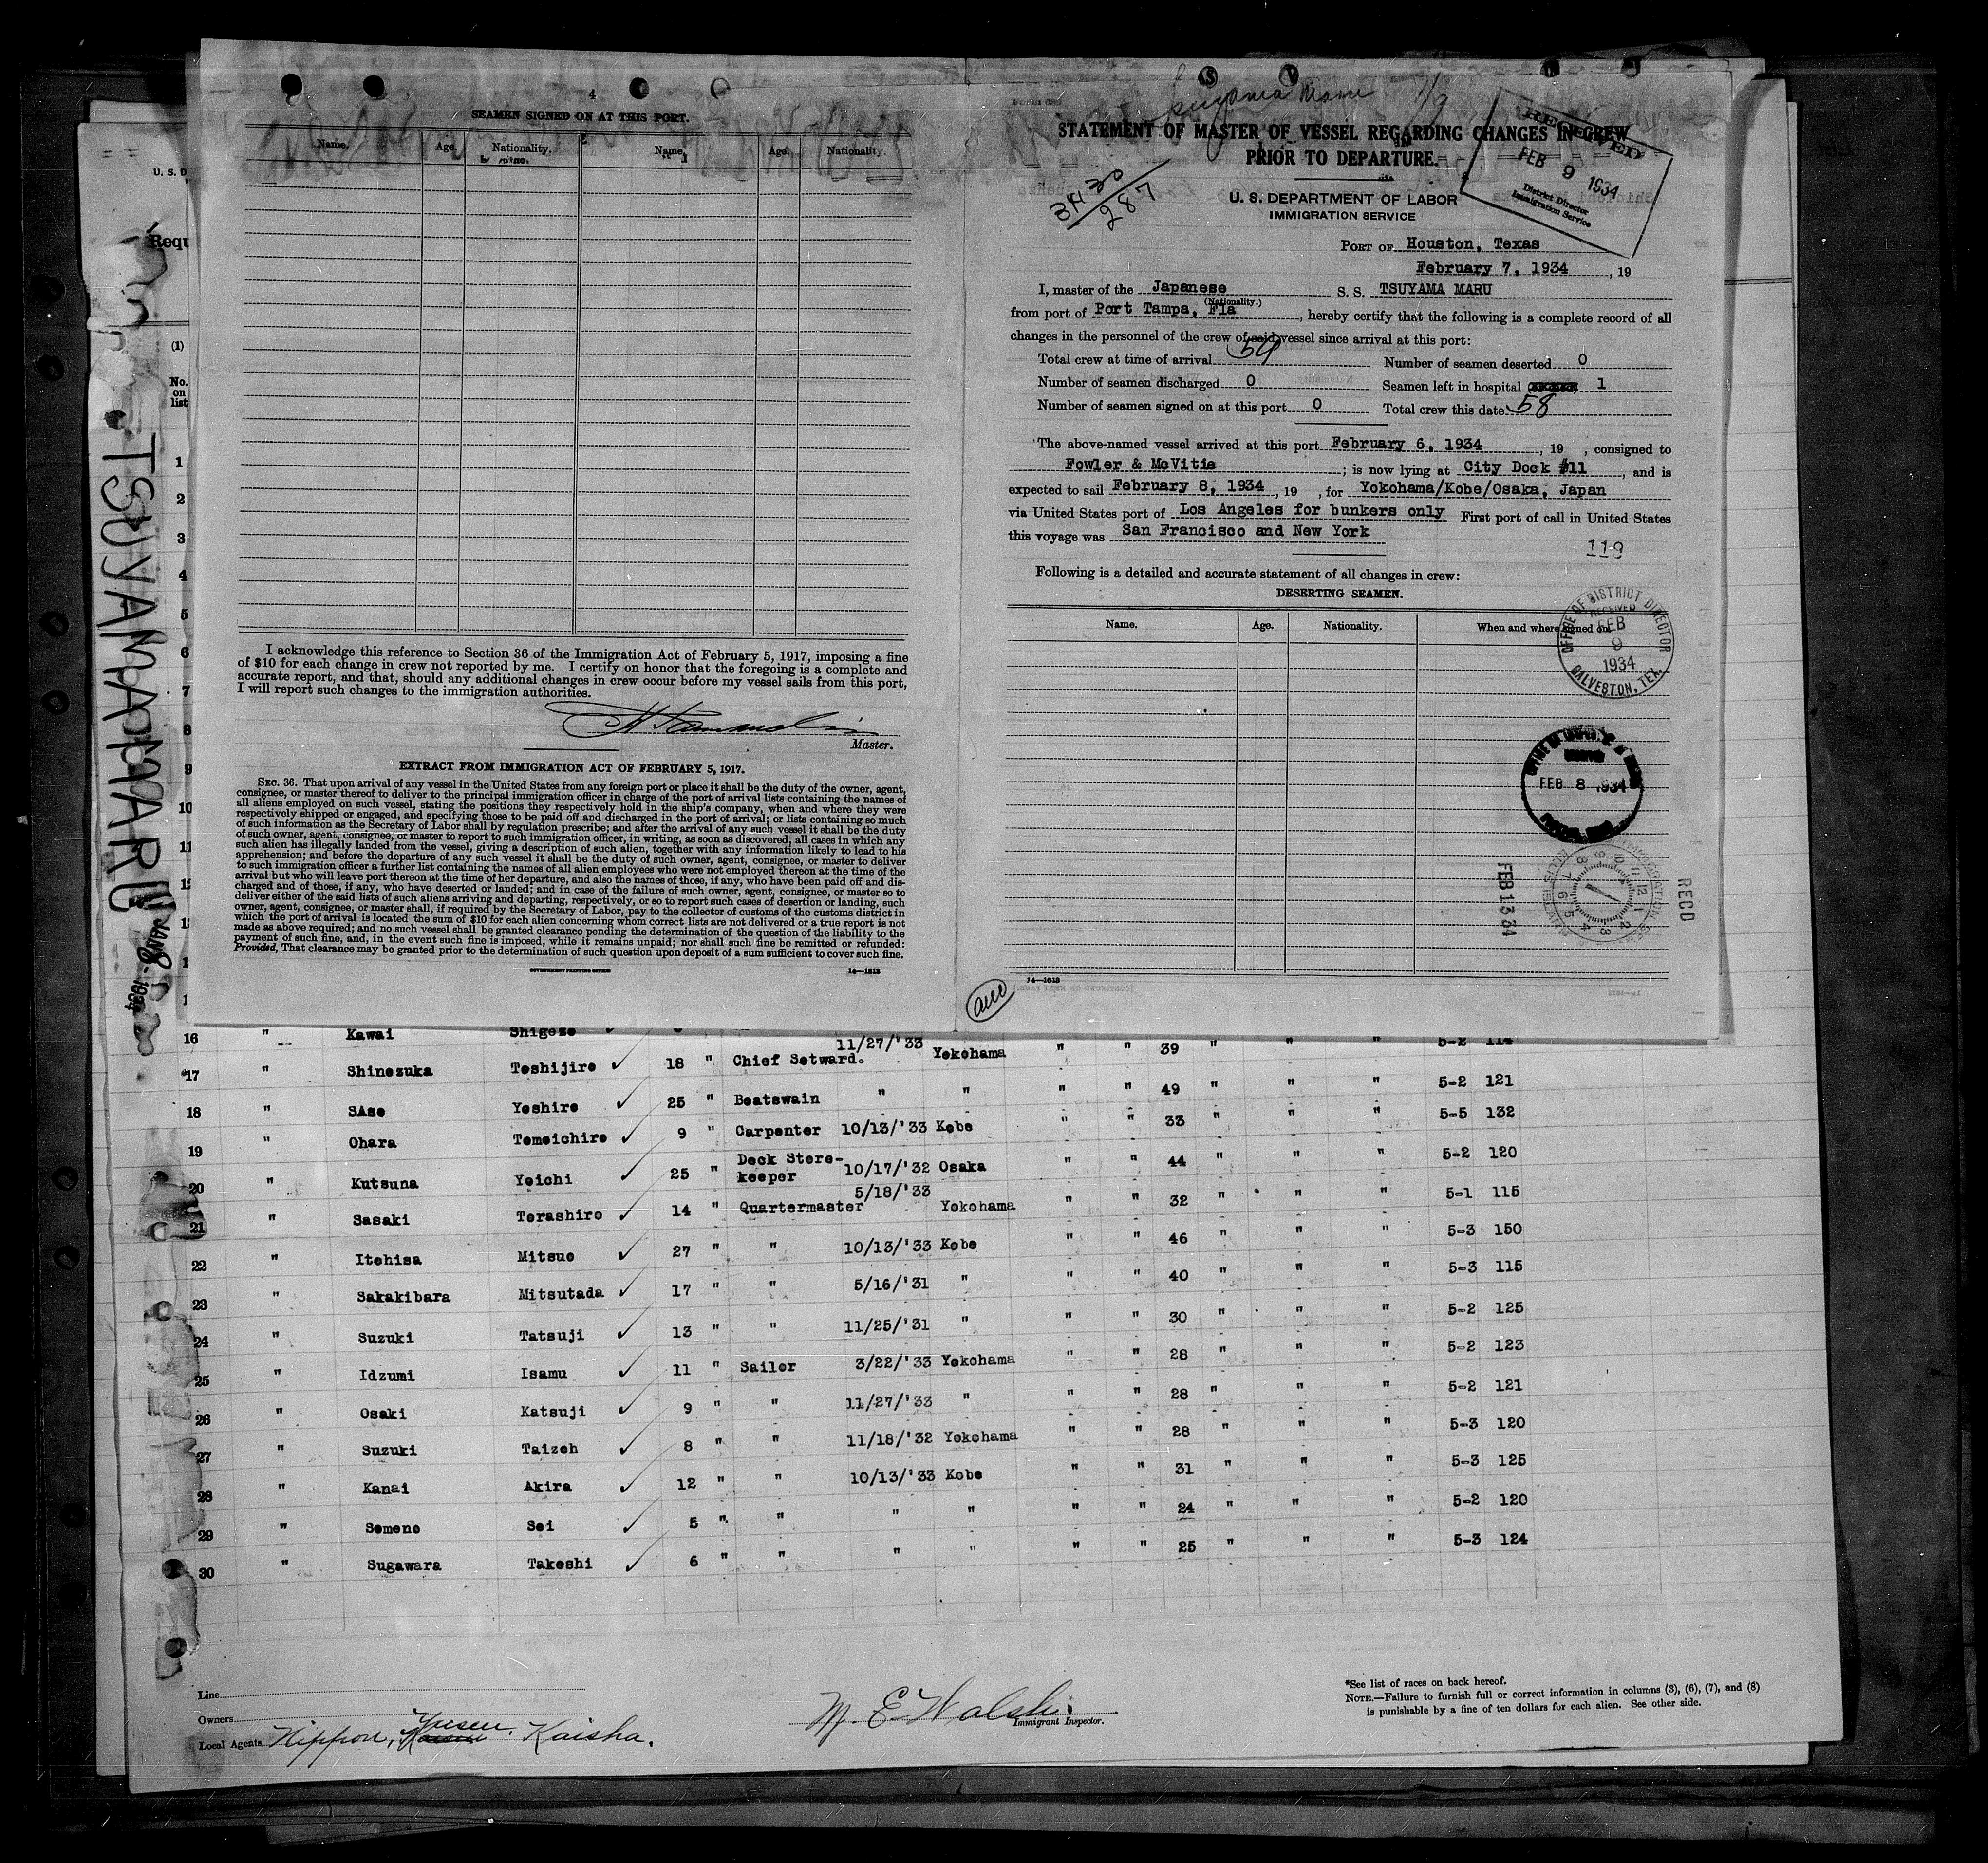 4
SEAMEN SIGNED ON AT THIS PORT.
Name. Age. Nationality. Name. Age. Nationality.
I acknowledge this reference to Section 36 of the Immigration Act of February 5, 1917, imposing a fine
of $10 for each change in crew not reported by me. I certify on honor that the foregoing is a complete and
accurate report, and that, should any additional changes in crew occur before my vessel sails from this port,
I will report such changes to the immigration authorities.
Master.
EXTRACT FROM IMMIGRATION ACT OF FEBRUARY 5, 1917.
SEC. 36. That upon arrival of any vessel in the United States from any foreign port or place it shall be the duty of the owner, agent,
consignee, or master thereof to deliver to the principal immigration officer in charge of the port of arrival lists containing the names of
all aliens employed on such vessel, stating the positions they respectively hold in the ship's company, when and where they were
respectively shipped or engaged, and specifying those to be paid off and discharged in the port of arrival; or lists containing so much
of such information as the Secretary of Labor shall by regulation prescribe; and after the arrival of any such vessel it shall be the duty
of such owner, agent, consignee, or master to report to such immigration officer, in writing, as soon as discovered, all cases in which any
such alien has illegally landed from the vessel, giving a description of such alien, together with any information likely to lead to his
apprehension; and before the departure of any such vessel it shall be the duty of such owner, agent, consignee, or master to deliver
to such immigration officer a further list containing the names of all alien employees who were not employed thereon at the time of the
arrival but who will leave port thereon at the time of her departure, and also the names of those, if any, who have been paid off and dis-
charged and of those, if any, who have deserted or landed; and in case of the failure of such owner, agent, consignee, or master so to
deliver either of the said lists of such aliens arriving and departing, respectively, or so to report such cases of desertion or landing, such
owner, agent, consignee, or master shall, if required by the Secretary of Labor, pay to the collector of customs of the customs district in
which the port of arrival is located the sum of $10 for each alien concerning whom correct lists are not delivered or a true report is not
made as above required; and no such vessel shall be granted clearance pending the determination of the question of the liability to the
payment of such fine, and, in the event such fine is imposed, while it remains unpaid; nor shall such fine be remitted or refunded:
Provided, That clearance may be granted prior to the determination of such question upon deposit of a sum sufficient to cover such fine.
GOVERNMENT PRINTING OFFICE 14—1613
Maru
STATEMENT OF MASTER OF VESSEL REGARDING CHANGES IN CREW
PRIOR TO DEPARTURE.
RECEIVED
FEB 9 1934
District Director
Immigration Service
287
U. S. DEPARTMENT OF LABOR
IMMIGRATION SERVICE
PORT OF Houston, Texas
February 7, 1934, 19
I, master of the Japanese S. S. TSUYAMA MARU
(Nationality.)
from port of Port Tampa, Fla, hereby certify that the following is a complete record of all
changes in the personnel of the crew of said vessel since arrival at this port:
Total crew at time of arrival 59 Number of seamen deserted 0
Number of seamen discharged 0 Seamen left in hospital 1
Number of seamen signed on at this port 0 Total crew this date 58
The above-named vessel arrived at this port February 6, 1934, 19 , consigned to
Fowler & McVitie; is now lying at City Dock #11, and is
expected to sail February 8, 1934, 19 , for Yokohama/Kobe/Osaka, Japan
via United States port of Los Angeles for bunkers only First port of call in United States
this voyage was San Francisco and New York
119
Following is a detailed and accurate statement of all changes in crew:
DESERTING SEAMEN.
Name. Age. Nationality. When and where signed on.
OFFICE OF DISTRICT DIRECTOR
RECEIVED
FEB
9
1934
GALVESTON, TEX.
FEB 8 1934
FEB 13 34
RECD
14—1613
U. S. D
Requ
(1)
No.
on
list
1
2
3
4
5
6
7
8
9
10
11
TSUYAMA MARU
16 " Kawai Shigeze 5-2 114
17 " Shinezuka Teshijire ✓ 18 " Chief Setward. 11/27/'33 Yekohama " " 39 " " " 5-2 121
18 " SAse Yeshire ✓ 25 " Beatswain " " " " 49 " " " 5-5 132
19 " Ohara Temeichire ✓ 9 " Carpenter 10/13/'33 Kebe " " 33 " " " 5-2 120
20 " Kutsuna Yeichi ✓ 25 " Deck Stere-keeper 10/17/'32 Osaka " " 44 " " " 5-1 115
21 " Sasaki Terashire ✓ 14 " Quartermaster 5/18/'33 Yekohama " " 32 " " " 5-3 150
22 " Itehisa Mitsue ✓ 27 " " 10/13/'33 Kebe " " 46 " " " 5-3 115
23 " Sakakibara Mitsutada ✓ 17 " " 5/16/'31 " " " 40 " " " 5-2 125
24 " Suzuki Tatsuji ✓ 13 " " 11/25/'31 " " " 30 " " " 5-2 123
25 " Idzumi Isamu ✓ 11 " Sailer 3/22/'33 Yekohama " " 28 " " " 5-2 121
26 " Osaki Katsuji ✓ 9 " " 11/27/'33 " " " 28 " " " 5-3 120
27 " Suzuki Taizeh ✓ 8 " " 11/18/'32 Yekohama " " 28 " " " 5-3 125
28 " Kanai Akira ✓ 12 " " 10/13/'33 Kebe " " 31 " " " 5-2 120
29 " Semene Sei ✓ 5 " " " " " " 24 " " " 5-3 124
30 " Sugawara Takeshi ✓ 6 " " " " " " 25 " " "
Line
Owners
Local Agents Nippon Yusen Kaisha.
M. E. Walsh.
Immigrant Inspector.
*See list of races on back hereof.
NOTE.—Failure to furnish full or correct information in columns (3), (6), (7), and (8)
is punishable by a fine of ten dollars for each alien. See other side.